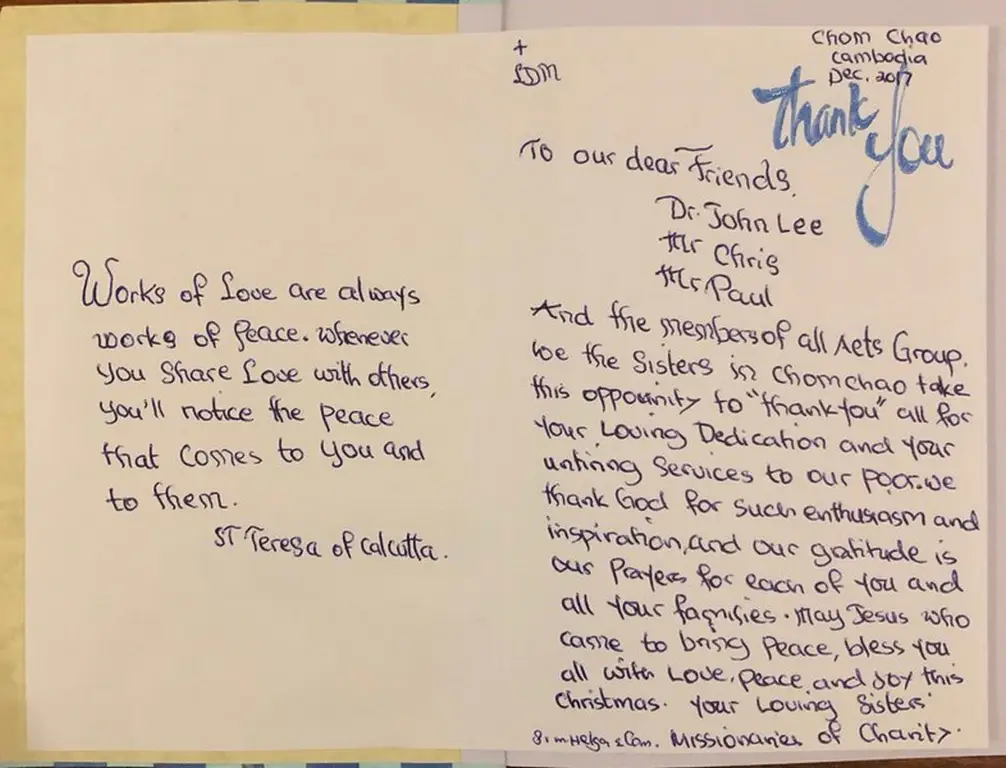 Works of Love are always
works of Peace. whenever
you share Love with others,
you'll notice the peace
that comes to you and
to them.
ST Teresa of Calcutta.
+
LDM
Chom Chao
Cambodia
Dec. 2017
Thank You
To our dear Friends,
Dr. John Lee
Mr Chris
Mr Paul
And the members of all Acts Group.
we the Sisters in Chomchao take
this oppounity to "thank you" all for
your Loving Dedication and your
untiring Services to our poor. we
thank God for such enthusiasm and
inspiration, and our gratitude is
our Prayers for each of you and
all your families. May Jesus who
came to bring Peace, bless you
all with Love, peace and Joy this
Christmas. your Loving Sisters
Sr. M Helga & Com. Missionaries of Charity.